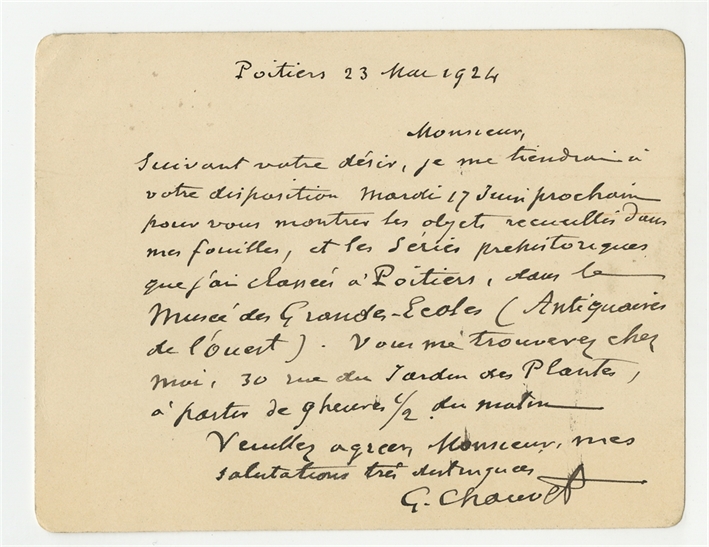 Poitiers 23 Mai 1924
Monsieur,
Suivant votre désir, je me tiendrai à
votre disposition Mardi 17 Juin prochain
pour vous montrer les objets recueillis dans
mes fouilles, et les séries préhistoriques
que j'ai classées à Poitiers, dans le
Musée des Grandes-Ecoles (Antiquaires
de l'Ouest). Vous me trouverez chez
moi, 30 rue du Jardin des Plantes,
à partir de 9 heures 1/2 du matin
Veuillez agréer, Monsieur, mes
salutations très distinguées
G. Chauvet